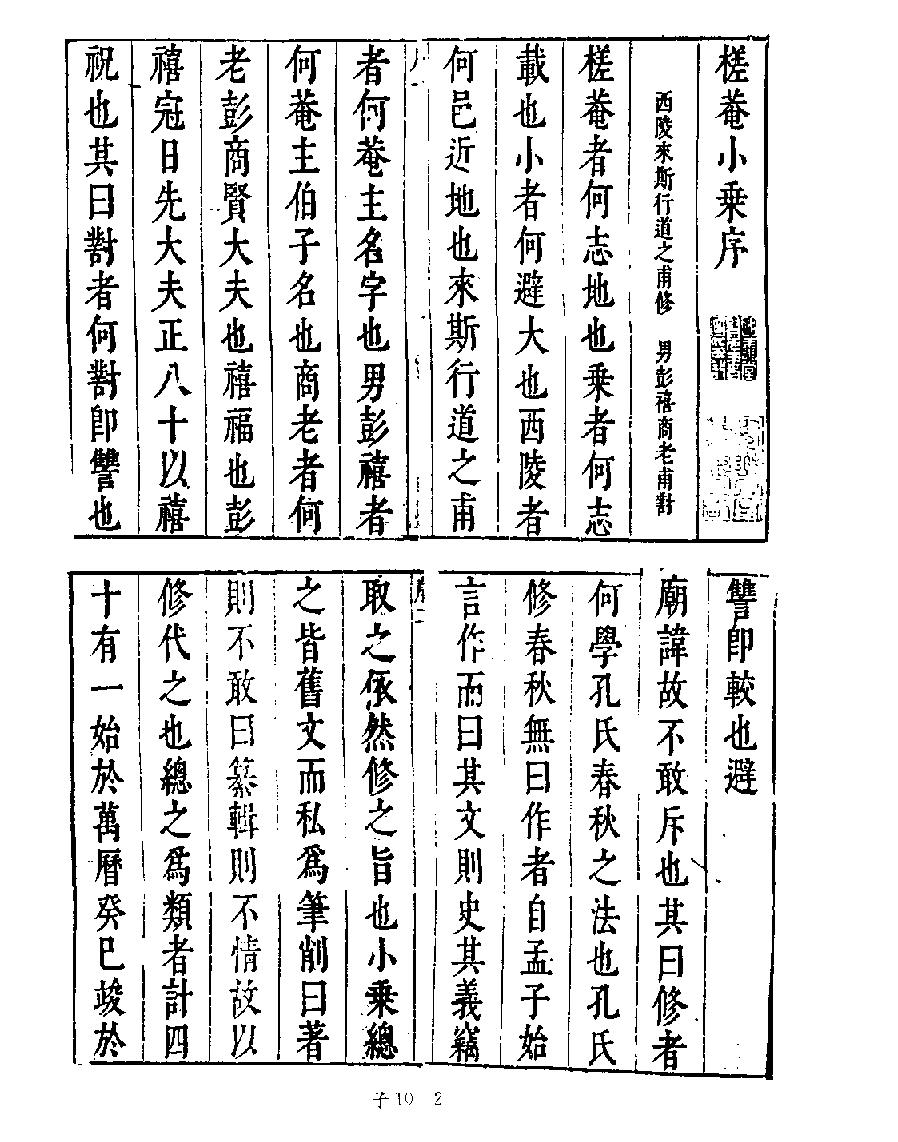 槎菴小乘序
西陵來斯行道之甫修　男彭禧商老甫對
槎菴者何志地也乘者何志
載也小者何避大也西陵者
何邑近地也來斯行道之甫
者何菴主名字也男彭禧者
何菴主伯子名也商老者何
老彭商賢大夫也禧福也彭
禧冠日先大夫正八十以禧
祝也其曰對者何對卽讐也
讐卽較也避
廟諱故不敢斥也其曰修者
何學孔氏春秋之法也孔氏
修春秋無曰作者自孟子始
言作而曰其文則史其義竊
序二
取之依然修之旨也小乘總
之皆舊文而私爲筆削曰著
則不敢曰纂輯則不情故以
修代之也總之爲類者計四
十有一始於萬曆癸巳竣於
子10 2